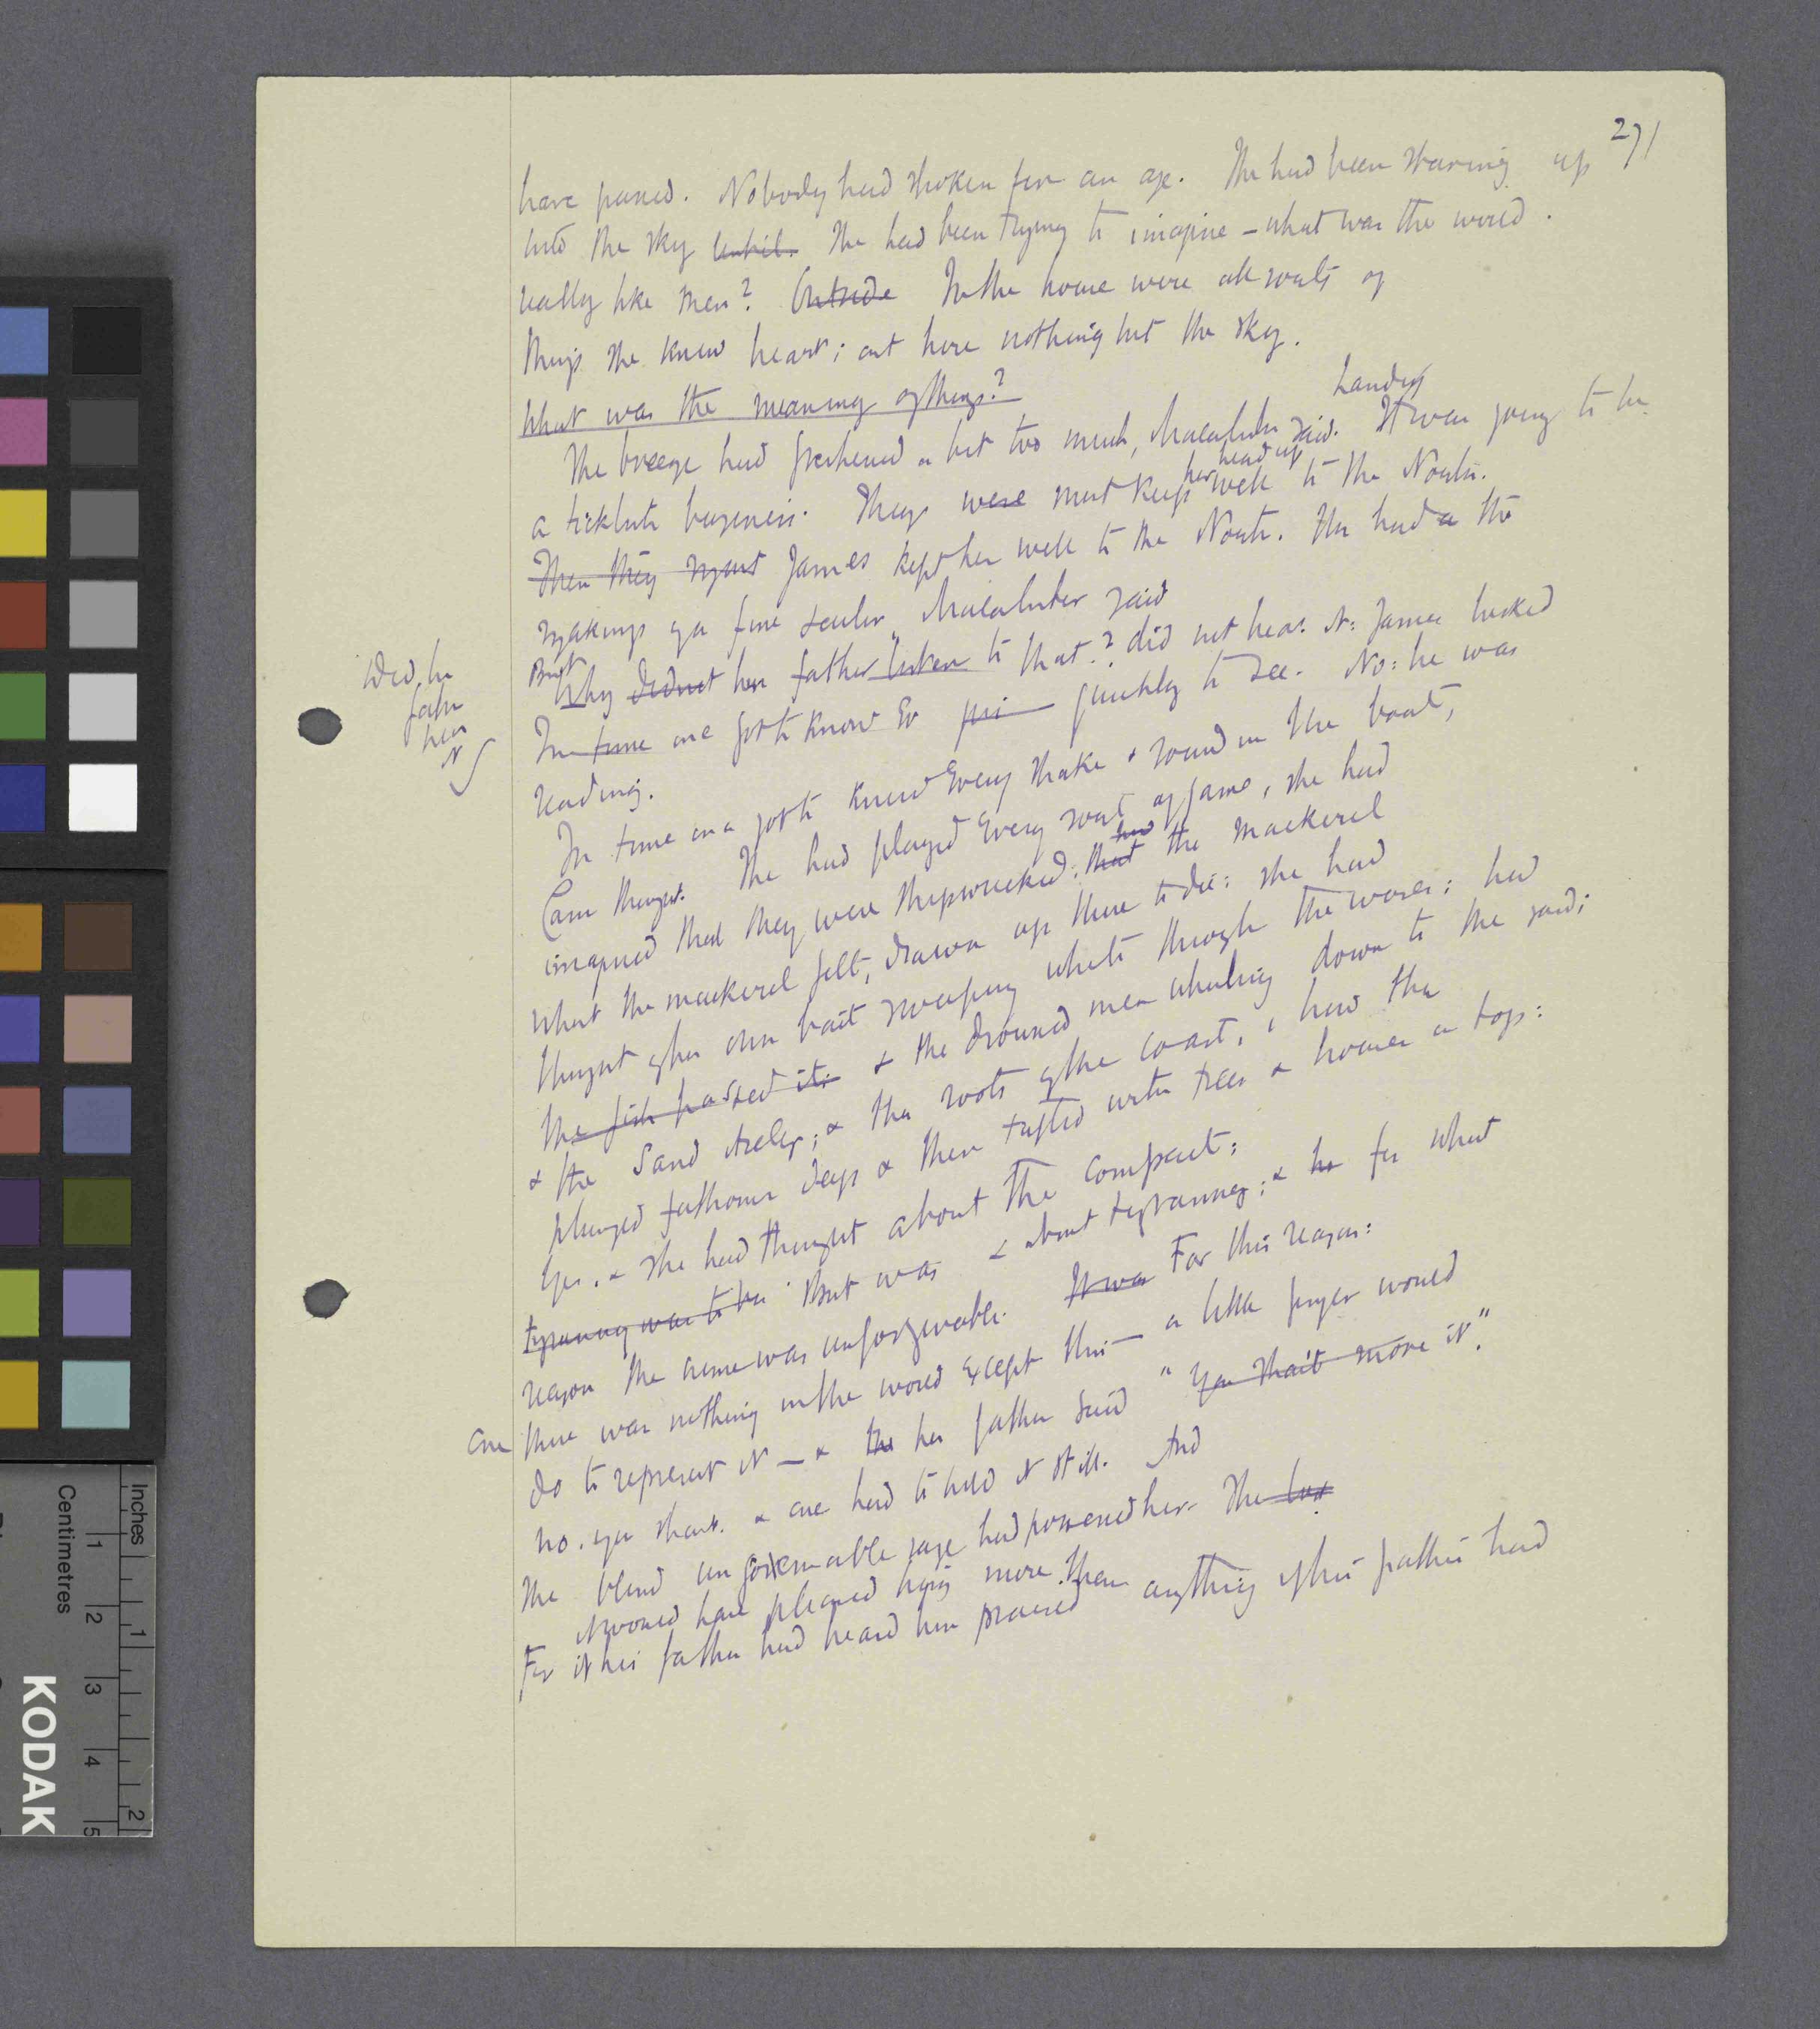 271
have passed. Nobody had spoken for an age. She had been staring up
into the sky until. She had been trying to imagine - what was the world
really like then? Outside In the house were all sorts of
things she knew heart; out here nothing but the sky.
What was the meaning of things?
The breeze had freshened a bit too much, Macalister said. It was going to be
handy
her head up
a ticklish business. They were must keep well to the North.
Then they must James kept her well to the North. He had a the
makings of a fine sailor Macalister said
But Why didnt her father listen to that? did not hear it: James looked
Did he
father
hear
it
In time one got to know Ev quickly to see. No: he was
reading.
In time one got to know Every shake & sound in the boat,
Cam thought. She had played Every sort of game, she had
imagined that they were shipwrecked; that the mackerel
had
what the mackerel felt, drawn up there to die; she had
thought of her own bait sweeping white through the waves; had
the fish passed it; & the drowned men whirling down to the sand;
& the sand itself; & the roots of the coast, & how the
plunged fathoms deep & then tufted with trees & houses a top:
Yes. & she had thought about the compact;
tyranny was to be that was & about tyranny; & ho for what
reason the crime was unforgivable. It was For this reason:
there was nothing in the world Except this — a little finger would
One
do to represent it — & the her father said "You shant move it".
no. you shant. & one had to hold it still. And
the blind rage had possessed her. The
it would have pleased him more than anything if his father had
For if his father had heard him praised
Inches
Centimetres
1
2
3
4
5
1
2
KODAK